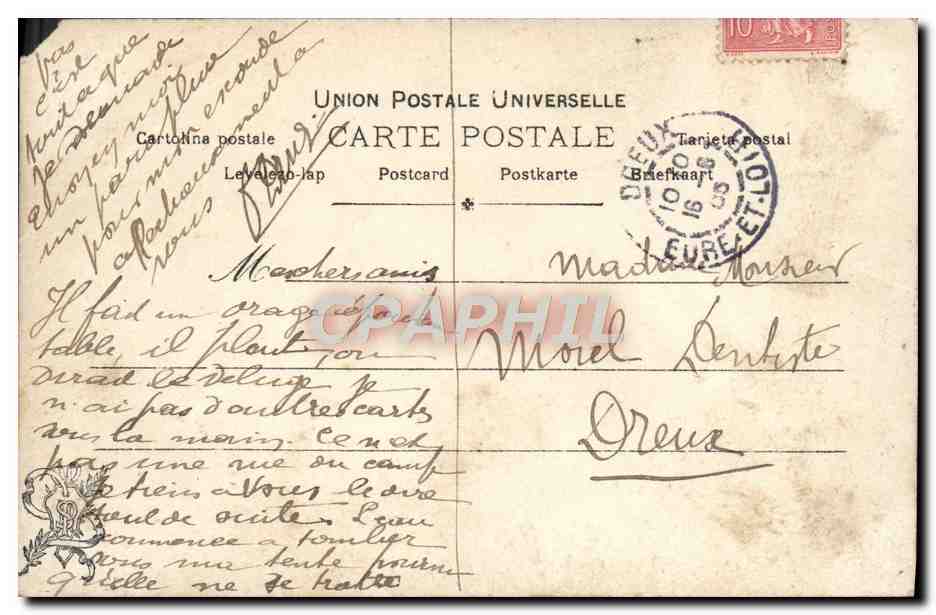 10
UNION POSTALE UNIVERSELLE
Cartolina postale CARTE POSTALE Tarjeta postal
Levelezo-lap Postcard Postkarte Briefkaart
DREUX
10 - 8
16 05
EURE-ET-LOIR
Madame Monsieur
Morel Dentiste
Dreux
Mes chers amis
Il fait un orage épouv
table, il pleut, on
dirait le déluge Je
n'ai pas d'autres cartes
sous la main. Ce n'est
pas une vue du camp
Je tiens à vous le dire
tout de suite. L'eau
commence à tomber
sous ma tente pourvu
qu'elle ne se
pas
c'est
tout ce que
je demande
Envoyez moi
un parapluie
pour mon exode
vous
CPAPHIL